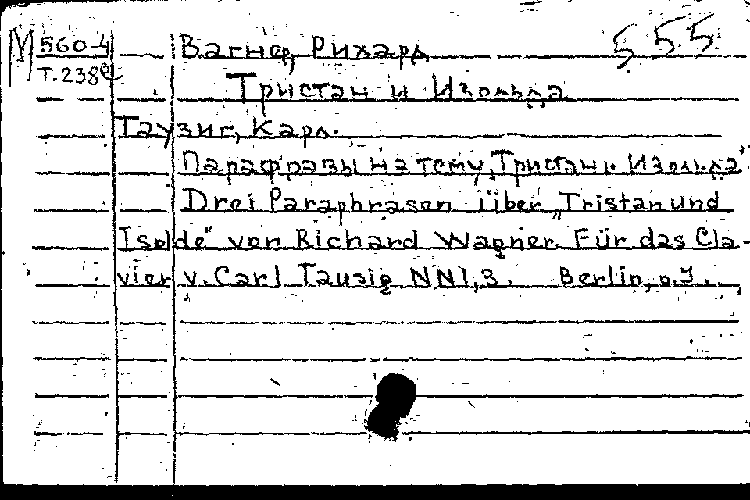 М 560-4 Вагнер, Рихард 555
Т.238е Тристан и Изольда
Таузиг, Карл.
Парафразы на тему "Тристан и Изольда"
Drei Paraphrasen über „Tristan und
Isolde" von Richard Wagner. Für das Cla-
vier v. Carl Tausig NN1,3. Berlin, o.J.